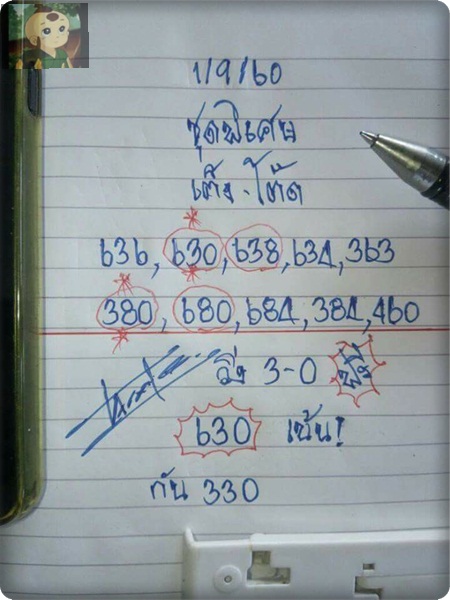 1/9/60
ชุดพิเศษ
เต็ง-โต๊ด
636, 630, 638, 634, 363
380, 680, 684, 384, 460
วิ่ง 3-0
630 เน้น!
กัน 330